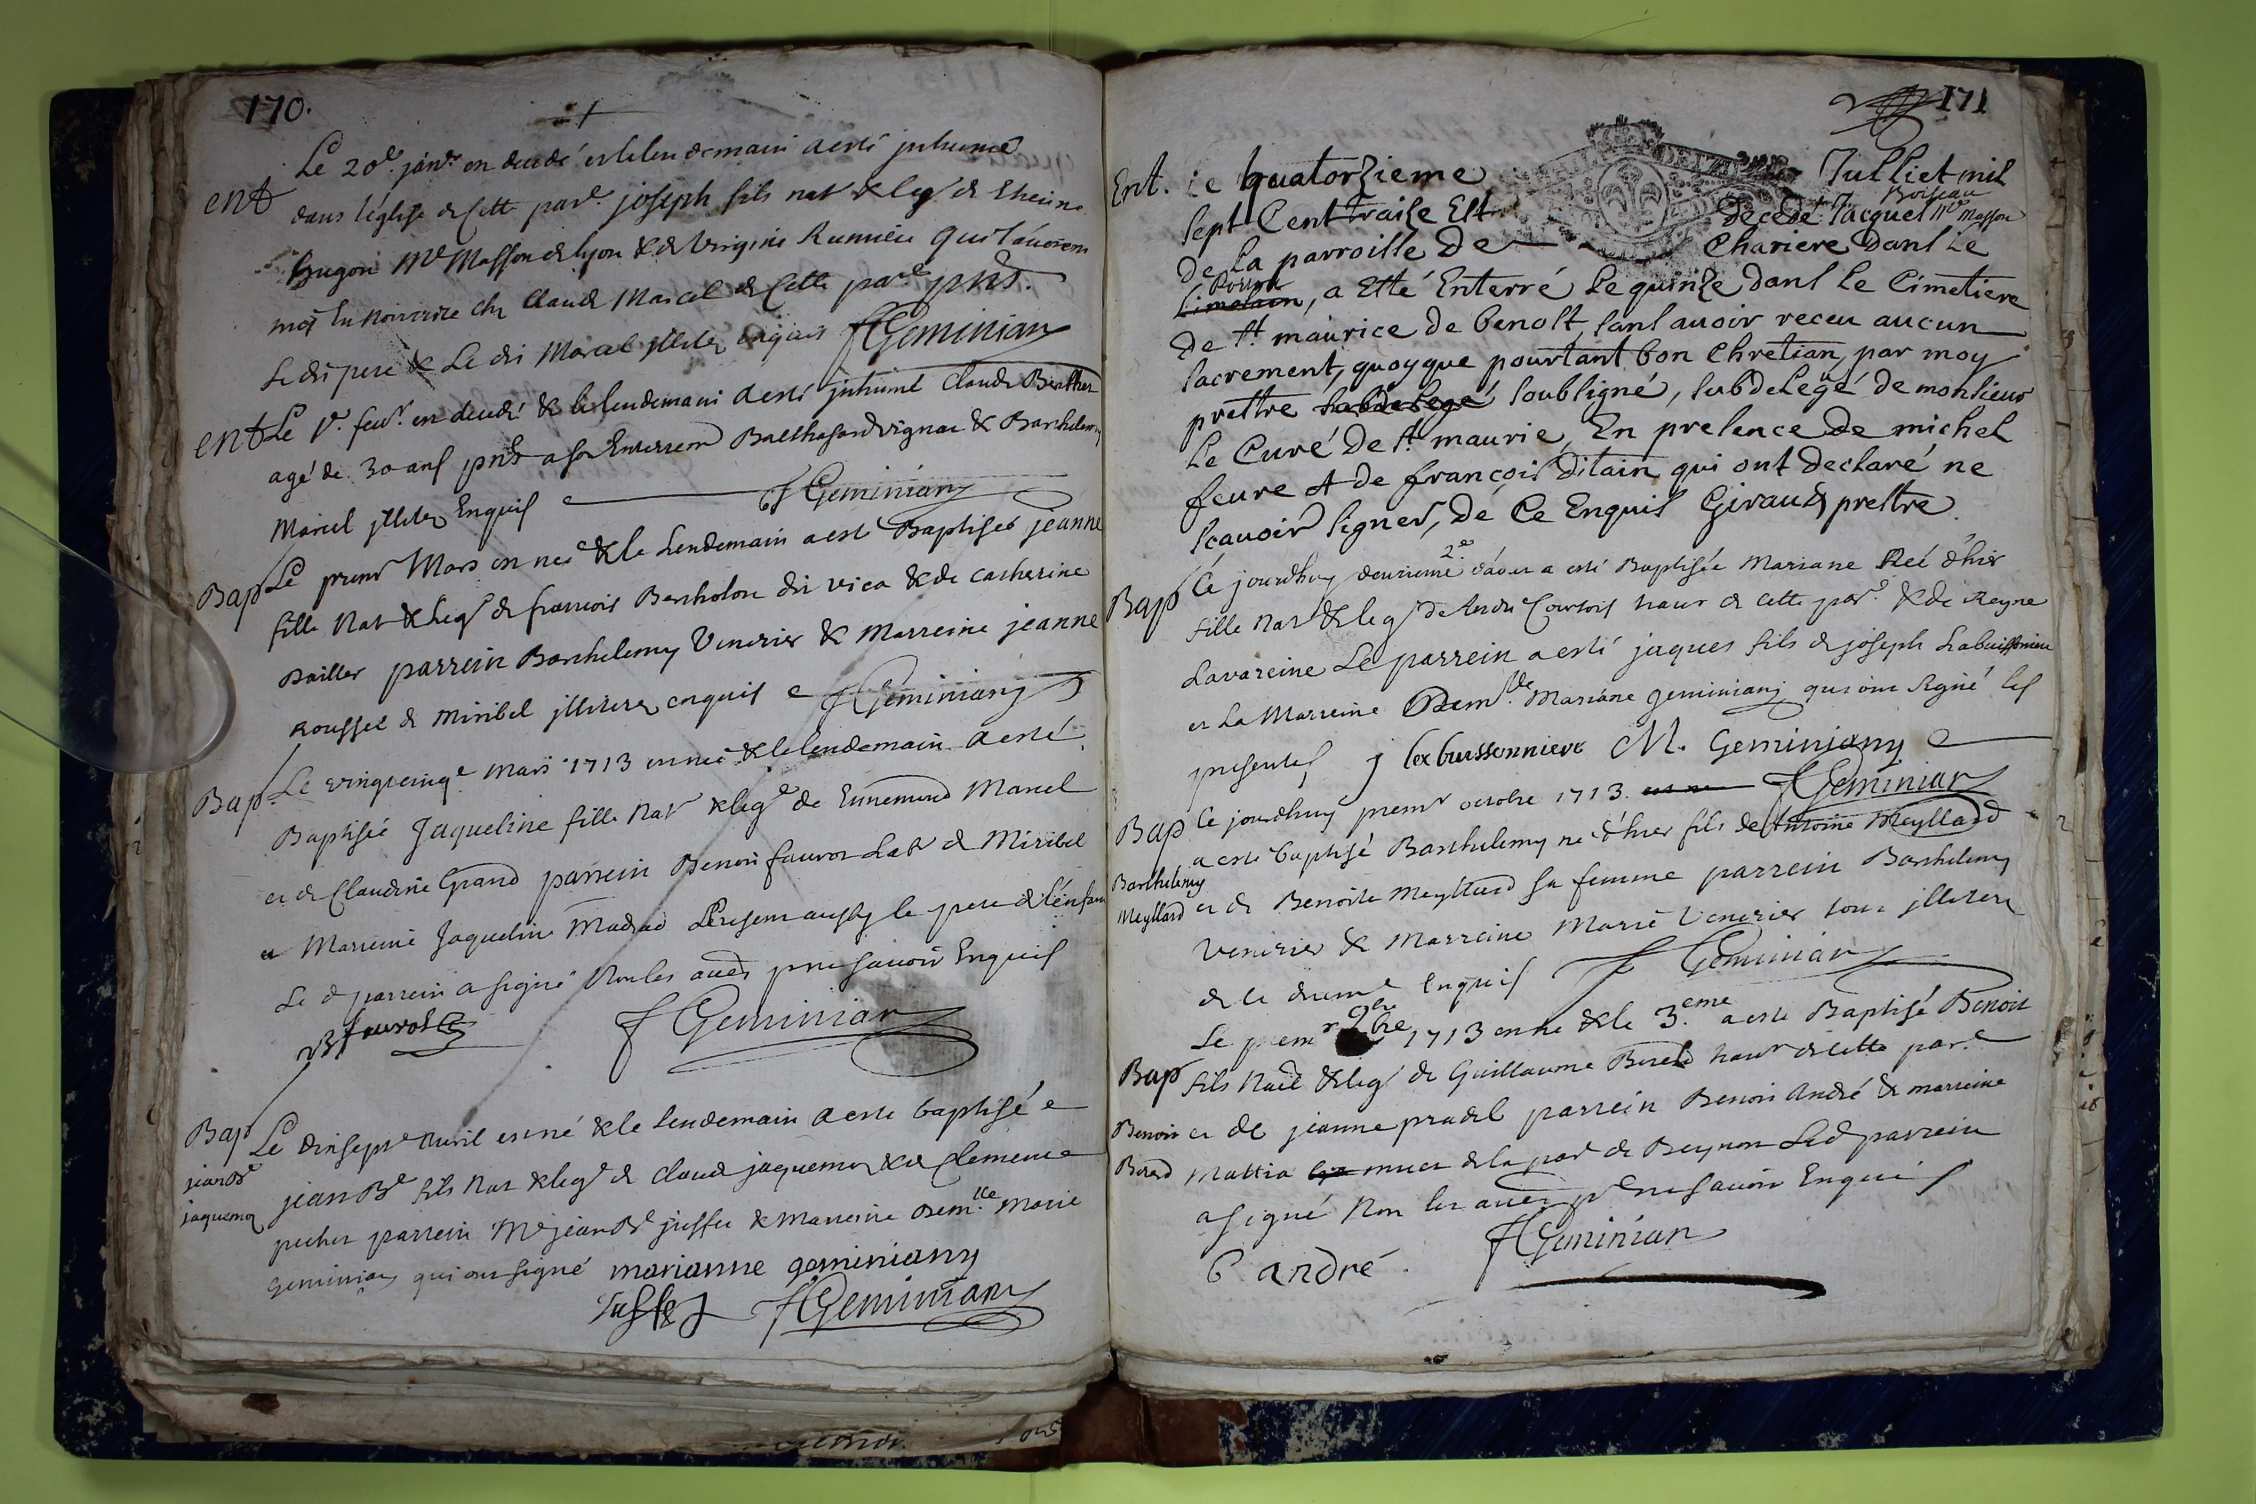 170.
ent
Le 20e. janr. en decedé et le lendemain a esté inhumé
dans l'eglise de cette parr. joseph fils nat & leg de Etienne
hugon Me Masson de lyon & de Virginie Rumieu qui l'avoient
mis en nourrice chez Claude Marcel de Cette parre pnts.
Le dit pere & Le dit Marcel illiterez enquis f Geminiany
ent Le Ve. feur. en decedé & le lendemain a esté inhumé Claude Berthet
agé de 30 ans pnts a son Enterrem Balthasard vignat & Barthelemy
Marcel illiterez Enquis f Geminiany
Bap Le premr Mars en née & le Lendemain a esté Baptisée jeanne
fille Nat & Leg de francois Bertholon dit vica & de catherine
Bailler parrein Barthelemy Venerier & Marreine jeanne
Roussel de Miribel illiterez enquis e f Geminiany
Bap. Le vingt cinqe Mars 1713 en née & le lendemain a esté
Baptisée Jaqueline fille Nat & lege de Ennemond Marcel
et de Claudine Grand parrein Benoit fauvot Labr de Miribel
et Marreine Jaqueline Madrad Present aussy le pere de l'enfan
Le d parrein a signé Non les autres pr ne savoir Enquis
B fauvot
f Geminiany
Bap
jean Be
jaquemoz
Le dixsepte Avril est né & le Lendemain a esté baptisé e
jean Be fils Nat & lege de Claude jaquemoz & de Clemence
pecher parrein Me jean Be juffet & Marreine Demlle Marie
Geminiany qui ont signé marianne geminiany
Juffet f Geminiany
171
Ent. Le quatorzieme Julliet mil
Boiseau
sept Cent traise Est decedé Jacques Me Masson
De La parroisse De Chariere Dans Le
Limosin, a Etté Enterré Le quinze dans Le Cimetiere
De st. maurice de benost, sans avoir receu aucun
sacrement, quoyque pourtant bon Chretian, par moy
prettre subdelegé soubsigné, subdelegé de monsieur
Le Curé De st. maurie, En presence De michel
feure et de françois ditain qui ont declaré ne
scauoir signer, dé Ce Enquis Giraud prestre
Bap Ce jourdhuy deuxieme 2e d'aout a esté Baptisée Mariane née d'hier
fille Nat & leg de Andre Courtois haur de cette parr. & de Reyne
Lavareine Le parrein a esté jaques fils de joseph Labuissonniere
et La Marreine Demlle. Mariane geminiany qui ont signé les
presentes j labuissonniere M. Geminiany
f Geminiany
Bap Ce jourdhuy premr octobre 1713
a esté baptisé Barthelemy né d'hier fils de Antoine Meyllard
Barthelemy
Meyllard
et de Benoite Meyllard sa femme parrein Barthelemy
Venerier & Marreine Marie Venerier tous illiterez
de ce deume enquis f Geminiany
Le premr 9bre 1713 en né & le 3.eme a esté Baptisé Benoit
Bap fils Natl & leg de Guillaume Berod haur de cette parre
Benoit
Berod
et de jeanne pradel parrein Benoit André & marreine
Mattia muet de la parr de Beynon Led parrein
a signé Non les autres pr ne savoir Enquis
B andré.
f Geminiany